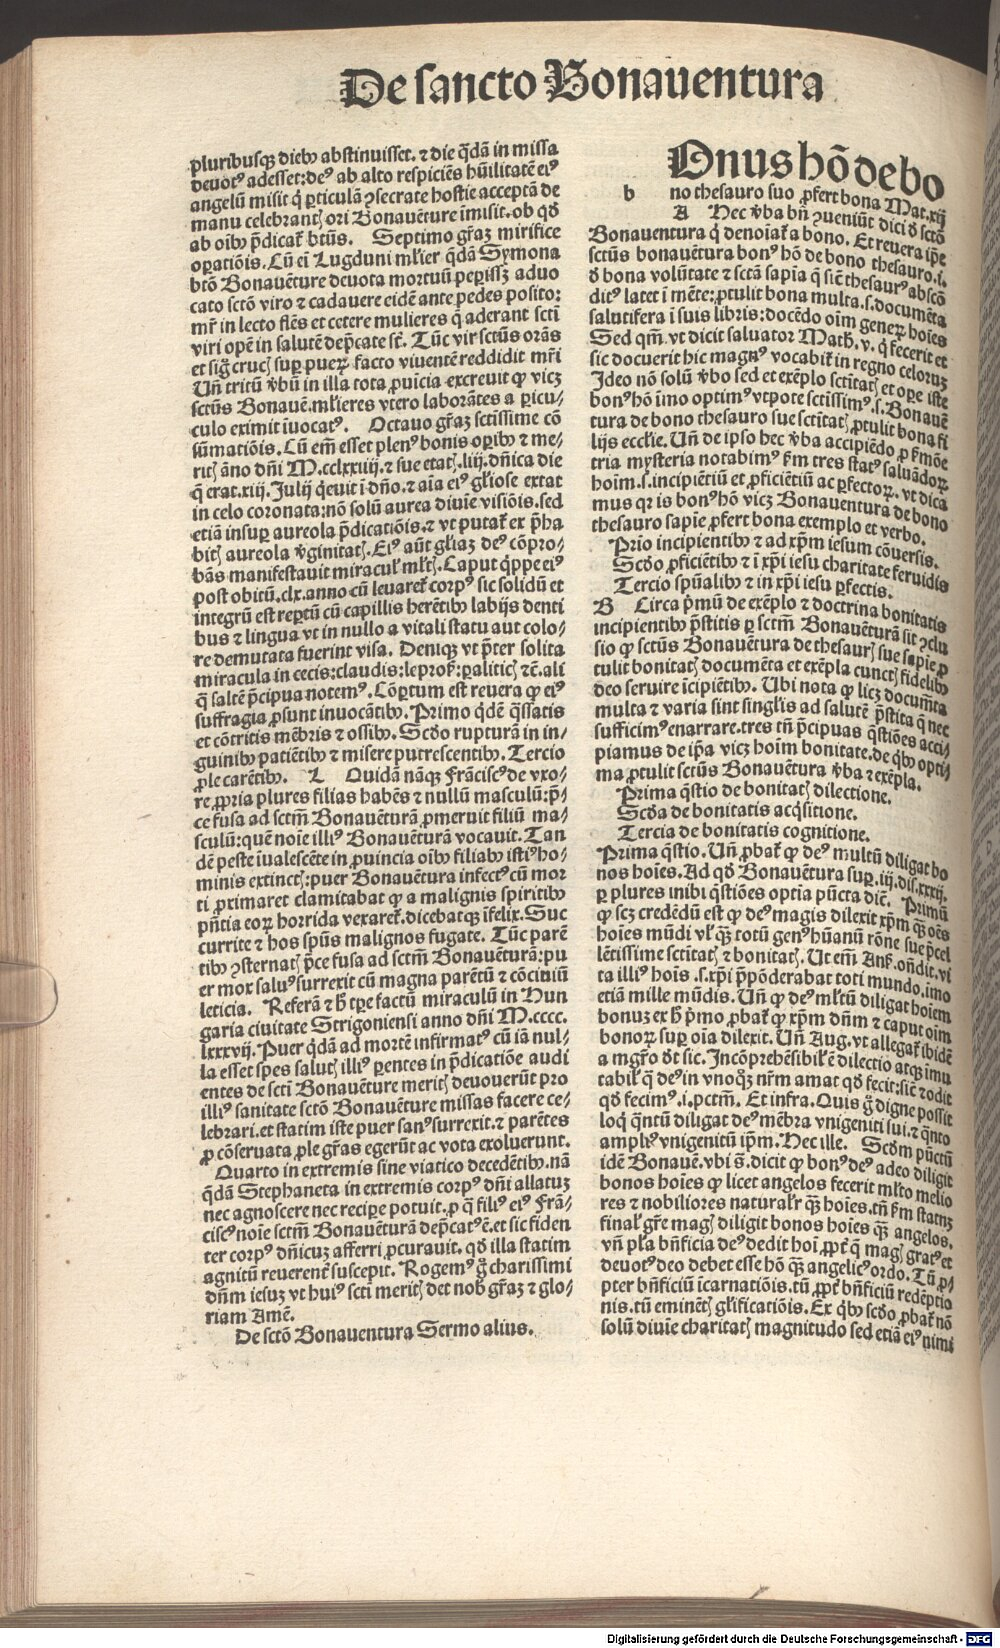 De sancto Bonauentura
pluribusqꝫ diebꝰ abstinuisset. ⁊ die q̃dã in missa
deuotꝰ adesset: deꝰ ab alto respiciẽs hũilitatẽ eiꝰ
angelũ misit q̇ ꝑticulã ꝯsecrate hostie acceptã de
manu celebrantꝭ ori Bonauẽture ĩmisit. ob qď
ab oĩbꝰ p̃dicat̃ btũs. Septimo gr̃aꝫ mirifice
oꝑatiõis. Cũ eĩ Lugduni mlier q̃dã Symona
btõ Bonauẽture deuota mortuũ peꝑissꝫ aduo
cato sctõ viro ⁊ cadauere eidẽ ante pedes posito:
mr̃ in lecto flẽs et cetere mulieres q̃ aderant scti
viri opẽ in salutẽ dep̃cate st̃. Tũc vir sctũs orãs
et sig̃ crucꝭ suꝑ pueꝝ facto viuentẽ reddidit mr̃i
Uñ tritũ v̓bũ in illa tota ꝓuicia excreuit ꝙ viꝫ
sctũs Bonauẽ. mlieres vtero laborãtes a ꝑicu/
culo eximit ĩuocatꝰ. Octauo gr̃aꝫ sctissime cõ
sũmatiõis. Cũ em̃ esset plenꝰ bonis oꝑibꝰ ⁊ me/
ritꝭ ãno dñi M.cclxxiiij. ⁊ sue etatꝭ .liij. dñica die
q̃ erat .xiij. Julij q̇euit ĩ dño. ⁊ aĩa eiꝰ gliose extat
in celo coronata: nõ solũ aurea diuĩe visiõis. sed
etiã insuꝑ aureola p̃dicatiõis. ⁊ vt putat̃ ex p̃ha
bitꝭ aureola v̓ginitatꝭ. Eiꝰ aũt gliaꝫ deꝰ cõpro/
bãs manifestauit miracul̓ mltꝭ. Caput q̇ppe eiꝰ
post obitũ .clx. anno cũ leuaret̃ corpꝰ sic solidũ et
integrũ est reꝑtũ cũ capillis herẽtibꝰ labijs denti
bus ⁊ lingua vt in nullo a vitali statu aut colo/
re demutata fuerint visa. Deniqꝫ vt p̃ter solita
miracula in cecis: claudis: lepros̓: ꝑaliticꝭ ⁊c̃. ali
q̃ saltẽ p̃cipua notemꝰ. Cõꝑtum est reuera ꝙ eiꝰ
suffragia ꝓsunt inuocãtibꝰ. Primo q̇dẽ q̃ssatis
et cõtritis mẽbris ⁊ ossibꝰ. Scďo rupturã in in/
guinibꝰ patiẽtibꝰ ⁊ misere putrescentibꝰ. Tercio
ꝓle carẽtibꝰ. L Quidã nãqꝫ Frãciscꝰ de vxo/
re ꝓpria plures filias habẽs ⁊ nullũ masculũ: p̃/
ce fusa ad sctm̃ Bonauẽturã ꝓmeruit filiũ ma/
sculũ: quẽ noĩe illiꝰ Bonauẽturã vocauit. Tan
dẽ peste ĩualescẽte in ꝓuincia oĩbꝰ filiabꝰ istiꝰ ho/
minis extinctꝭ: puer Bonauẽtura infectꝰ cũ mor
ti ꝓximaret clamitabat ꝙ a malignis spiritibꝰ
pñtia eoꝝ horrida vexaret̃. dicebatqꝫ ĩfelix. Suc
currite ⁊ hos spũs malignos fugate. Tũc parẽ
tibꝰ ꝯsternatꝭ p̃ce fusa ad sctm̃ Bonauẽturã: pu
er mox saluꝰ surrexit cũ magna parẽtũ ⁊ cõciuiũ
leticia. Referã ⁊ h̓ tꝑe factũ miraculũ in Hun
garia ciuitate Strigoniensi anno dñi M.cccc.
lxxxvij. Puer q̃dã ad mortẽ infirmatꝰ cũ iã nul/
la esset spes salutꝭ illiꝰ ꝑentes in p̃dicatiõe audi
entes de scti Bonauẽture meritꝭ deuouerũt pro
illiꝰ sanitate sctõ Bonauẽture missas facere ce/
lebrari. et statim iste puer sanꝰ surrexit. ⁊ parẽtes
ꝓ cõseruata ꝓle gr̃as egerũt ac vota exoluerunt.
Quarto in extremis sine viatico decedẽtibꝰ. nã
q̃dã Stephaneta in extremis corpꝰ dñi allatuꝫ
nec agnoscere nec reciꝑe potuit. ꝓ q̃ filiꝰ eiꝰ Frã/
ciscꝰ noĩe sctm̃ Bonauẽturã dep̃catꝰ ẽ. et sic fiden
ter corpꝰ dñicuꝫ afferri ꝓcurauit. qď illa statim
agnitũ reuerentꝭ suscepit. Rogemꝰ g̃ charissimi
dñm iesuꝫ vt huiꝰ scti meritꝭ det nob̓ gr̃aꝫ ⁊ glo/
riam Amẽ.
De sctõ Bonauentura Sermo alius.
Onus hõ de bo
b no thesauro suo ꝓfert bona Mat. xij
A Hec v̓ba bñ ꝯueniũt dici ď sctõ
Bonauentura q̇ denoĩat̃ a bono. Et reuera ip̃e
sctũs bonauẽtura bonꝰ hõ de bono thesauro .i.
ď bona volũtate ⁊ sctã sapĩa q̃ sic̃ thesaurꝰ abscõ
ditꝰ latet ĩ mẽte: ꝓtulit bona multa .s. documẽta
salutifera ĩ suis libris: docẽdo oĩm generꝝ hoĩes
Sed qm̃ vt dicit saluator Math̓. v. q̇ fecerit et
sic docuerit hic magnꝰ vocabit̃ in regno celoruꝫ
Ideo nõ solũ v̓bo sed et exẽplo sctitatꝭ et oꝑe iste
bonꝰ hõ ĩmo optimꝰ vtpote sctissimꝰ .s. Bonauẽ
tura de bono thesauro sue sctitatꝭ ꝓtulit bona fi
lijs eccl̓ie. Uñ de ipso hec v̓ba accipiẽdo ꝓ ẜmõe
tria mysteria notabimꝰ ẜm tres statꝰ saluãdoꝝ
hoĩm .s. incipiẽtiũ et ꝓficiẽtiũ ac ꝑfectoꝝ. vt dica
mus qr̃ is bonꝰ hõ vicꝫ Bonauentura de bono
thesauro sapĩe ꝓfert bona exemplo et verbo.
Prĩo incipientibꝰ ⁊ ad xp̃m iesum cõuersis.
Scďo ꝓficiẽtibꝰ ⁊ ĩ xp̃i iesu charitate feruidis
Tercio spũalibꝰ ⁊ in xp̃i iesu ꝑfectis.
B Circa p̓mũ de exẽplo ⁊ doctrina bonitatis
incipientibꝰ p̃stitis ꝑ sctm̃ Bonauẽturã sit ꝯclu
sio ꝙ sctũs Bonauẽtura de thesaurꝭ sue sapĩe ꝓ
tulit bonitatꝭ documẽta et exẽpla cunctꝭ fidelibꝰ
deo seruire ĩcipiẽtibꝰ. Ubi nota ꝙ licꝫ documẽta
multa ⁊ varia sint singlis ad salutẽ p̃stita q̃ nec
sufficimꝰ enarrare. tres tñ p̃cipuas q̃stiões acci/
piamus de ip̃a vicꝫ hoĩm bonitate. de q̇bꝰ opti/
ma ꝓtulit sctũs Bonauẽtura v̓ba ⁊ exẽpla.
Prima q̃stio de bonitatꝭ dilectione.
Scďa de bonitatis acq̇sitione.
Tercia de bonitatis cognitione.
Prima q̃stio. Uñ ꝓbat̃ ꝙ deꝰ multũ diligat bo
nos hoĩes. Ad qď Bonauẽtura suꝑ .iij. dis. xxxij.
ꝑ plures inibi q̃stiões optĩa pũcta dic̃. Primũ
ꝙ scꝫ credẽdũ est ꝙ deꝰ magis dilexit xp̃m qꝫ̃ oẽs
hoĩes mũdi vl̓ qꝫ̃ totũ genꝰ hũanũ rõne sue p̃cel
lẽtissime sctitatꝭ ⁊ bonitatꝭ. Ut em̃ Anẜ. oñdit. vi
ta illiꝰ hoĩs .s. xp̃i p̃põderabat toti mundo. ĩmo
etiã mille mũdis. Uñ ꝙ deꝰ mltũ diligat hoĩem
bonuꝫ ex h̓ p̓mo ꝓbat̃ ꝙ xp̃m dñm ⁊ caput oĩm
bonoꝝ suꝑ oĩa dilexit. Uñ Aug. vt allegat̃ ibidẽ
a mgr̃o ďt sic. Incõprehẽsibil̓ ẽ dilectio atqꝫ ĩmu
tabil̓ q̃ deꝰ in vnoqꝫ nr̃m amat qď fecit: sic̃ ⁊ odit
qď fecimꝰ .i. pctm̃. Et infra. Quis g̃ digne possit
loq̇ q̃ntũ diligat deꝰ mẽbra vnigeniti sui. ⁊ q̃nto
ampliꝰ vnigenitũ ip̃m. Hec ille. Scďm pũctũ
idẽ Bonauẽ. vbi s̃. dicit ꝙ bonꝰ deꝰ adeo diligit
bonos hoĩes ꝙ licet angelos fecerit mlto melio
res ⁊ nobiliores natural̓r qꝫ̃ hoĩes. tñ ẜm statuꝫ
final̓ gr̃e magꝭ diligit bonos hoĩes qꝫ̃ angelos.
vñ pl̓a bñficia deꝰ dedit hoĩ, ꝓpt̓ q̃ magꝭ gratꝰ et
deuotꝰ deo debet esse hõ qꝫ̃ angelicꝰ ordo. Tũ ꝓ/
pter bñficiũ ĩcarnatiõis. tũ ꝓpt̓ bñficiũ redẽptio
nis. tũ eminẽtꝭ gl̓ificatiõis. Ex q̇bꝰ scďo ꝓbat̃ nõ
solũ diuĩe charitatꝭ magnitudo sed etiã eiꝰ nimi
Digitalisierung gefördert durch die Deutsche Forschungsgemeinschaft - DFG